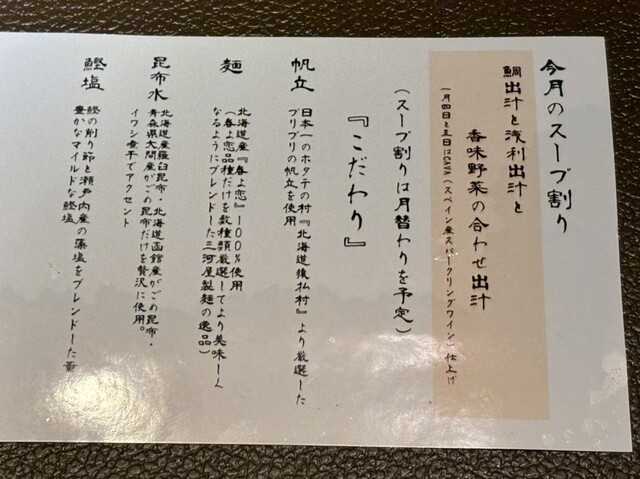 今月のスープ割り
鯛出汁と浅利出汁と
香味野菜の合わせ出汁
一月四日と五日はCAVA(スペイン産スパークリングワイン)仕上げ
(スープ割りは月替わりを予定)
『こだわり』
帆立
日本一のホタテの村『北海道猿払村』より厳選した
プリプリの帆立を使用
麺
北海道産『春よ恋』100%使用
(春よ恋品種だけを数種類厳選してより美味しく
なるようにブレンドした三河屋製麺の逸品)
昆布水
北海道産羅臼昆布・北海道函館産がごめ昆布・
青森県大間産がごめ昆布だけを贅沢に使用。
イワシ煮干でアクセント
鰹塩
鰹の削り節と瀬戸内産の藻塩をブレンドした香
豊かなマイルドな鰹塩